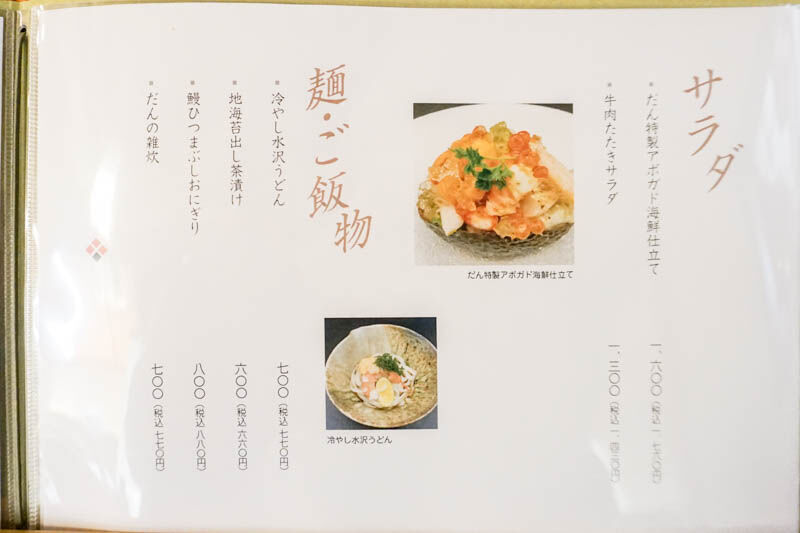 サラダ
だん特製アボガド海鮮仕立て 一、六〇〇(税込 一、七六〇円)
牛肉たたきサラダ 一、三〇〇(税込 一、四三〇円)
だん特製アボガド海鮮仕立て
麺・ご飯物
冷やし水沢うどん 七〇〇(税込 七七〇円)
地海苔出し茶漬け 六〇〇(税込 六六〇円)
鰻ひつまぶしおにぎり 八〇〇(税込 八八〇円)
だんの雑炊 七〇〇(税込 七七〇円)
冷やし水沢うどん